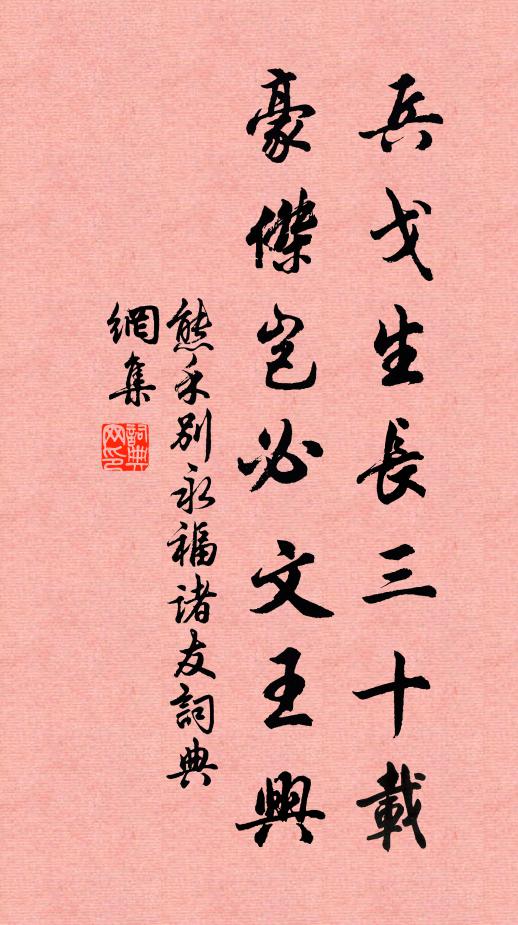 兵戈生長三十載
豪傑豈必文王興
熊禾別永福諸友詞典
網集
詞典
網印